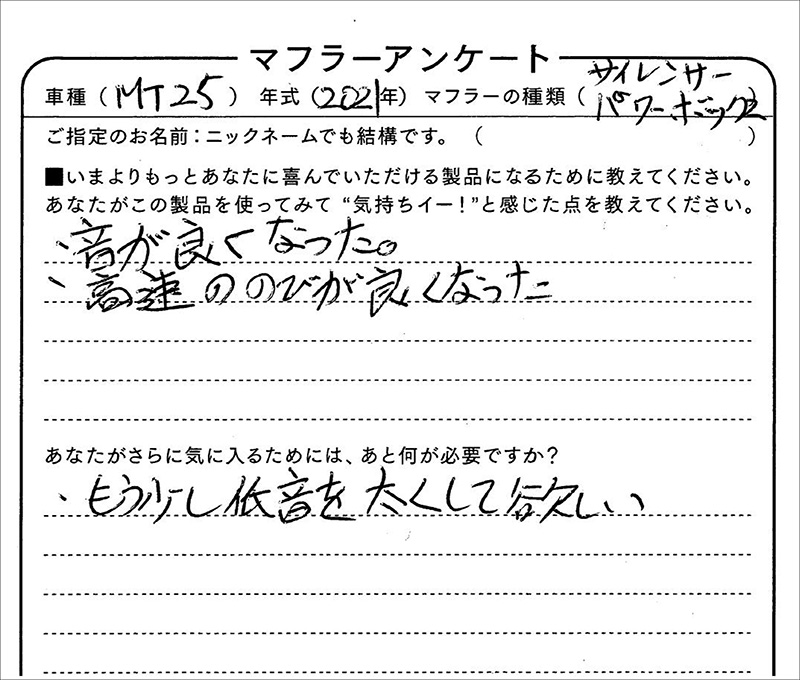 マフラーアンケート
車種（MT25） 年式（2021年） マフラーの種類（サイレンサー
パワーボックス）
ご指定のお名前：ニックネームでも結構です。（ ）
■いまよりもっとあなたに喜んでいただける製品になるために教えてください。
あなたがこの製品を使ってみて“気持ちイー！”と感じた点を教えてください。
、音が良くなった。
、高速ののびが良くなった
あなたがさらに気に入るためには、あと何が必要ですか？
、もう少し低音を太くして欲しい